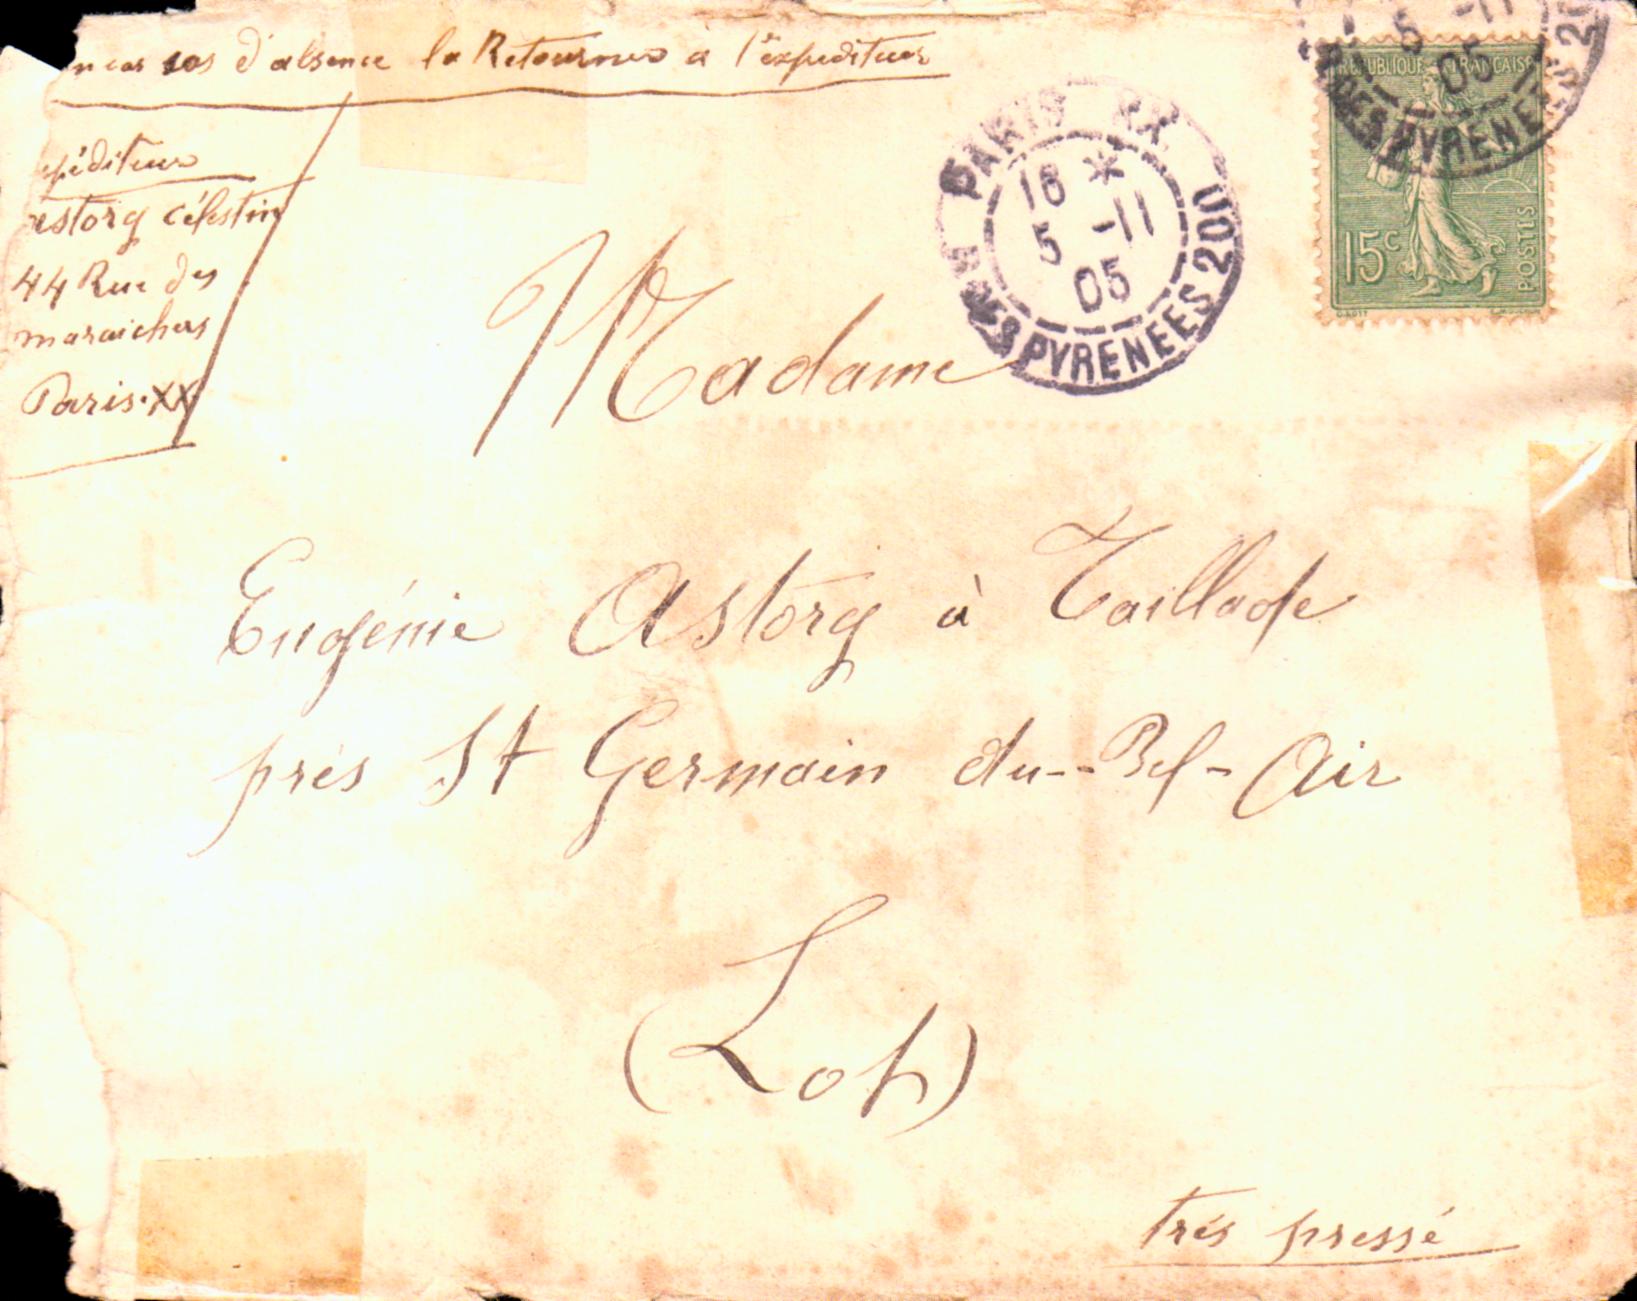 en cas d'absence la Retourner à l'expediteur
péditeur
astorg célestin
44 Rue des
maraichers
Paris.XX
PARIS XX
R. DES PYRENEES 200
16 *
5 -11
05
REPUBLIQUE FRANÇAISE
15c
POSTES
5 -11
05
DES PYRENEES 20
Madame
Eugénie Astorg à Taillade
près St Germain du--Bel-Air
(Lot)
très pressé